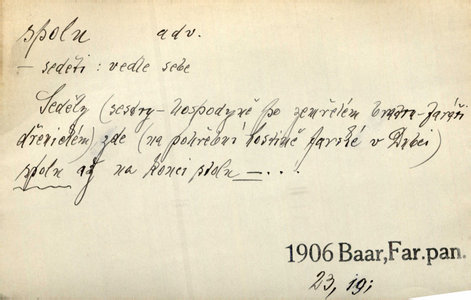 spolu adv.
– seděti : vedle sebe
Seděly (sestry-hospodyně po zemřelém bratru-faráři
dřevidlem) zde (na pohřební hostině farské v Dubci)
spolu až na konci stolu – . . .
1906 Baar, Far.pan.
23, 19;